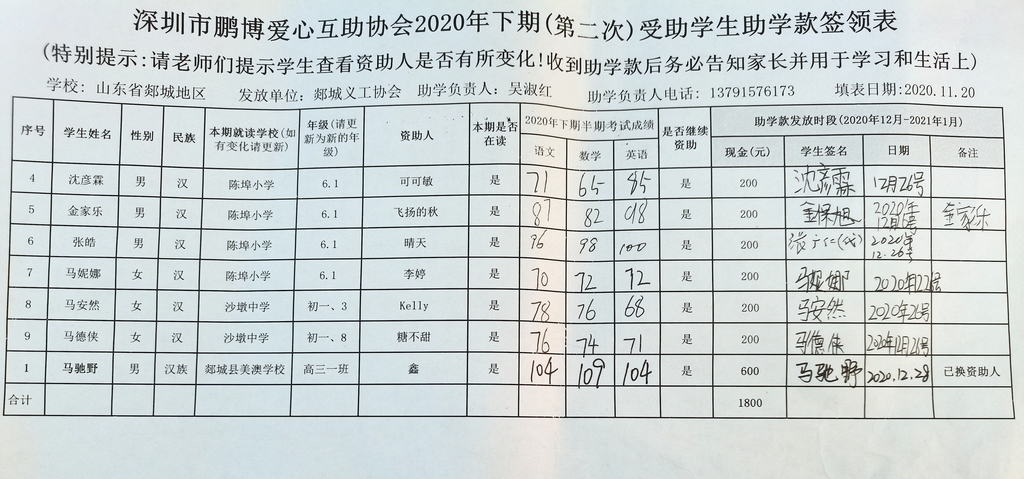 深圳市鹏博爱心互助协会2020年下期(第二次)受助学生助学款签领表
(特别提示:请老师们提示学生查看资助人是否有所变化!收到助学款后务必告知家长并用于学习和生活上)
学校: 山东省郯城地区 发放单位: 郯城义工协会 助学负责人: 吴淑红 助学负责人电话: 13791576173 填表日期:2020.11.20
序号 学生姓名 性别 民族 本期就读学校(如有变化请更新) 年级(请更新为新的年级) 资助人 本期是否在读 2020年下期半期考试成绩 是否继续资助 助学款发放时段(2020年12月-2021年1月)
语文 数学 英语 现金(元) 学生签名 日期 备注
4 沈彦霖 男 汉 陈埠小学 6.1 可可敏 是 71 65 85 是 200 沈彦霖 12月26号
5 金家乐 男 汉 陈埠小学 6.1 飞扬的秋 是 87 82 98 是 200 金保旭 2020年12月 号 金家乐
6 张皓 男 汉 陈埠小学 6.1 晴天 是 96 98 100 是 200 张 2020年12.26号
7 马妮娜 女 汉 陈埠小学 6.1 李婷 是 70 72 72 是 200 马妮娜 2020年 号
8 马安然 女 汉 沙墩中学 初一、3 Kelly 是 78 76 68 是 200 马安然 2020年26号
9 马德侠 女 汉 沙墩中学 初一、8 糖不甜 是 76 74 71 是 200 马德侠 2020年12月26号
1 马驰野 男 汉族 郯城县美澳学校 高三一班 鑫 是 104 109 104 是 600 马驰野 2020.12.28 已换资助人
合计 1800